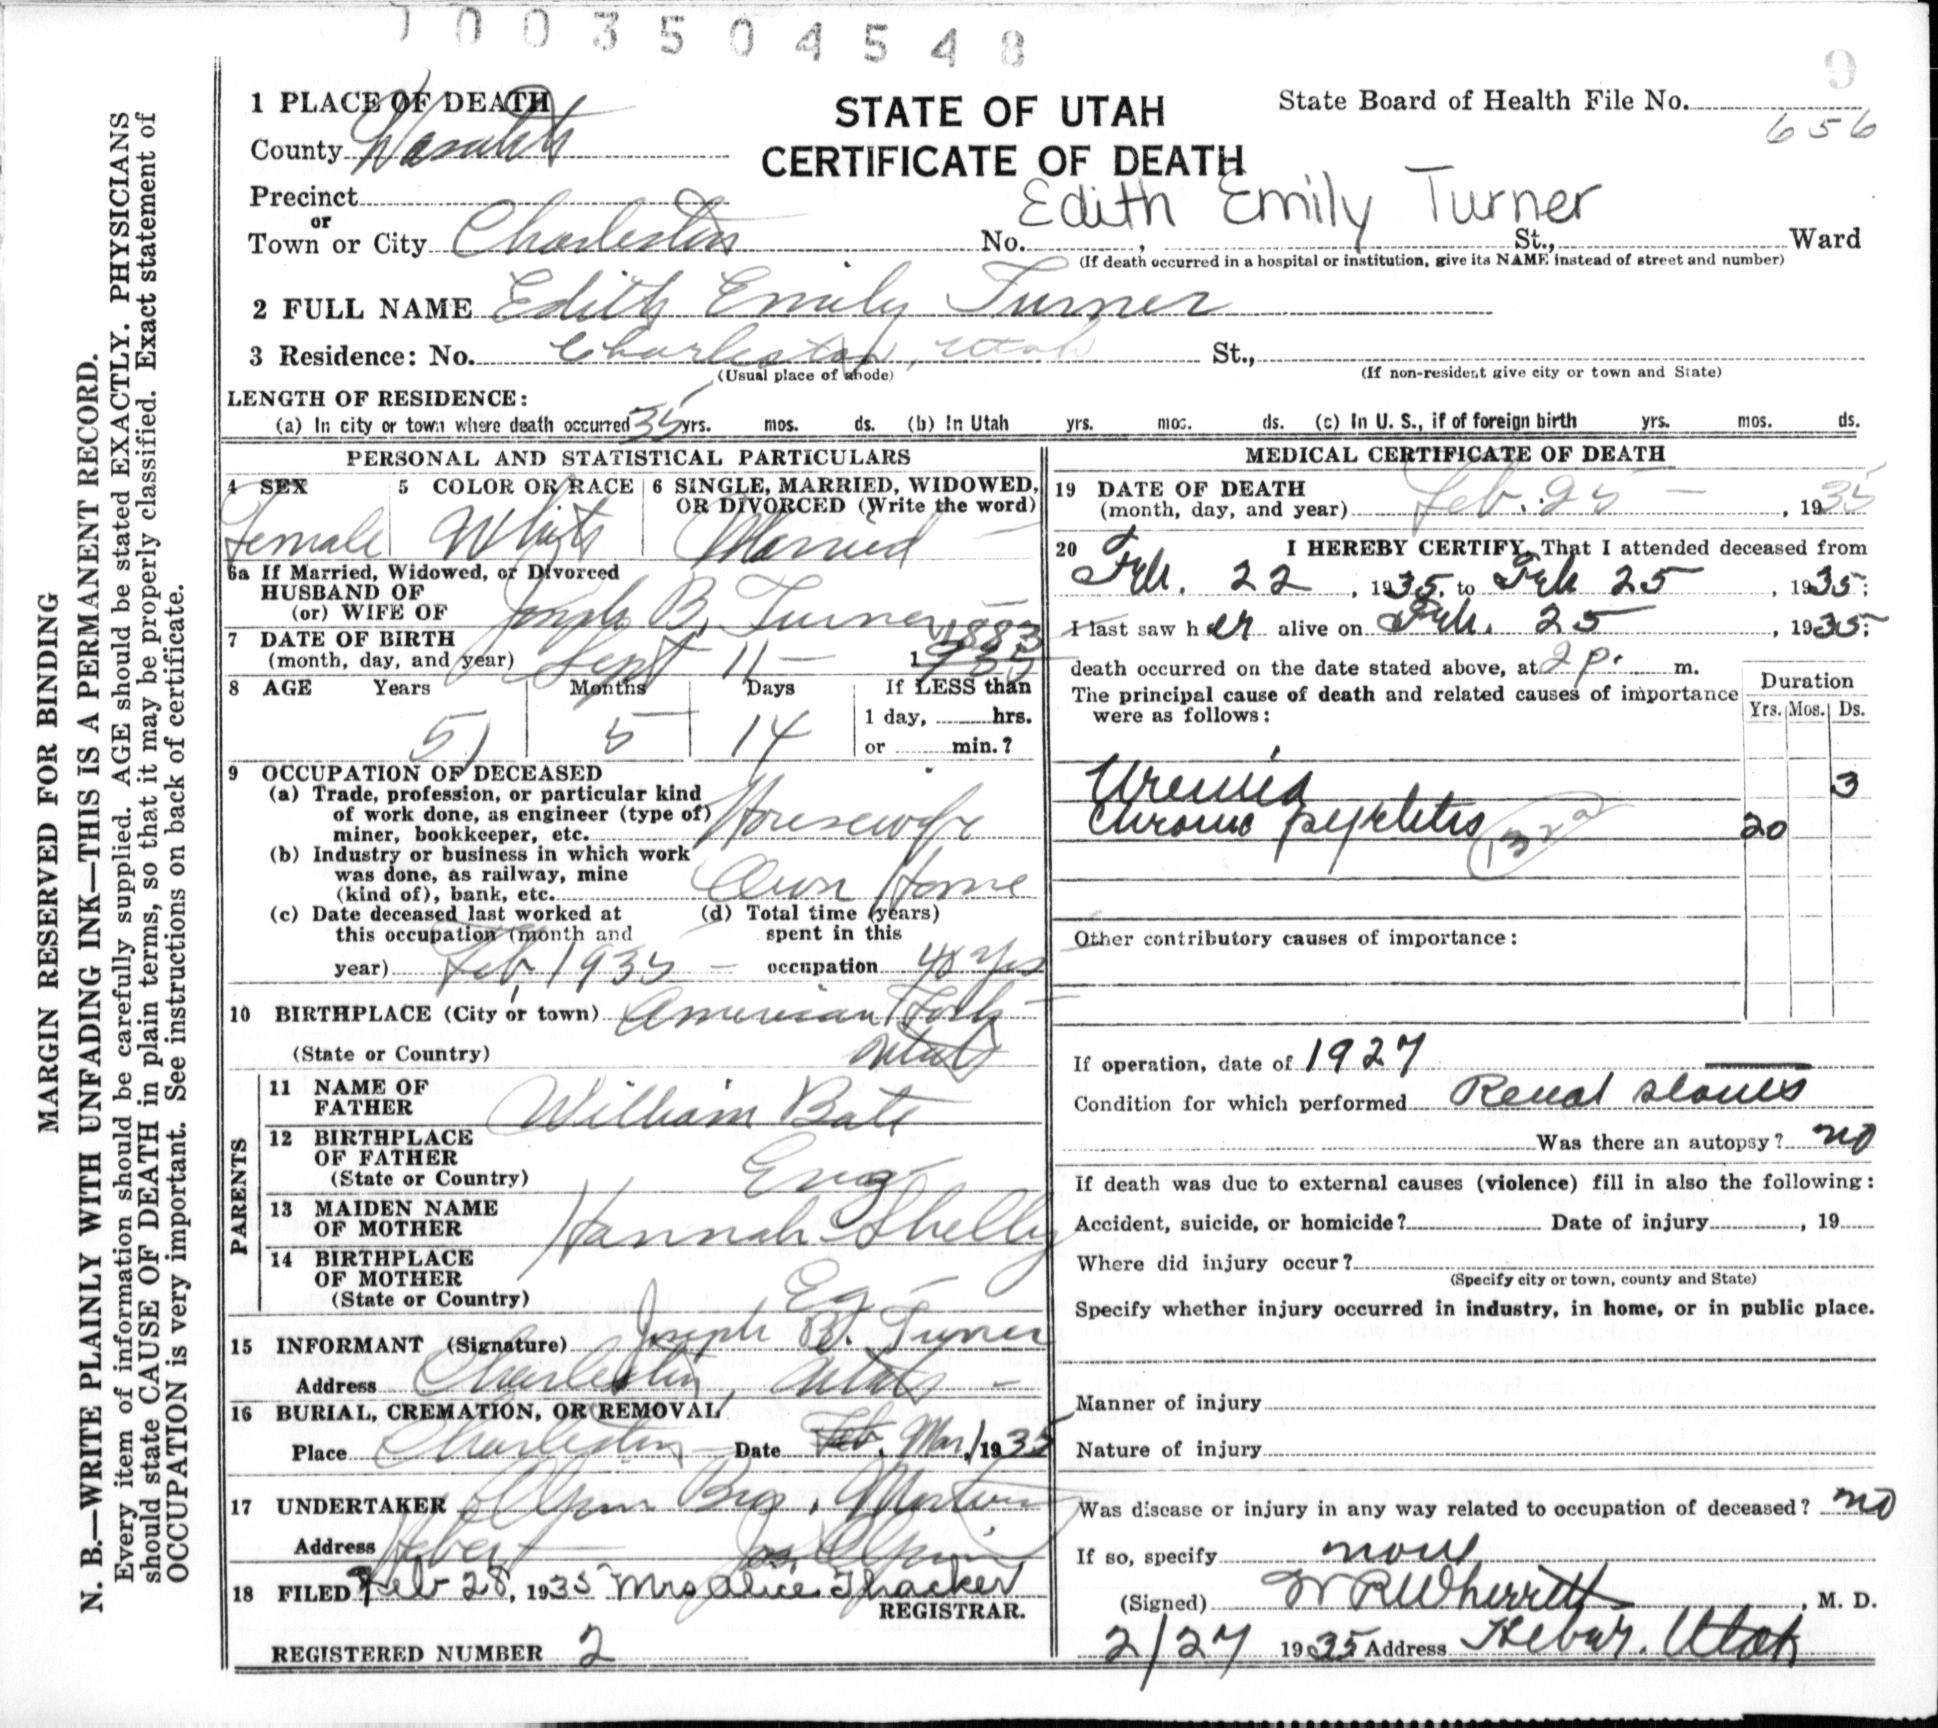 7003504548
9
1 PLACE OF DEATH
STATE OF UTAH
CERTIFICATE OF DEATH
State Board of Health File No.
656
County Wasatch
Precinct
or
Town or City Charleston
Edith Emily Turner
No. , St., Ward
(If death occurred in a hospital or institution, give its NAME instead of street and number)
2 FULL NAME Edith Emily Turner
3 Residence: No. Charleston, Utah St.,
(Usual place of abode)
(If non-resident give city or town and State)
LENGTH OF RESIDENCE:
(a) In city or town where death occurred 35 yrs. mos. ds. (b) In Utah yrs. mos. ds. (c) In U. S., if of foreign birth yrs. mos. ds.
PERSONAL AND STATISTICAL PARTICULARS
4 SEX
Female
5 COLOR OR RACE
White
6 SINGLE, MARRIED, WIDOWED, OR DIVORCED (Write the word)
Married
6a If Married, Widowed, or Divorced
HUSBAND OF
(or) WIFE OF Joseph B. Turner
7 DATE OF BIRTH
(month, day, and year) Sept 11 - 1883
1935
8 AGE Years Months Days If LESS than
51 5 14 1 day, hrs.
or min.?
9 OCCUPATION OF DECEASED
(a) Trade, profession, or particular kind
of work done, as engineer (type of)
miner, bookkeeper, etc. Housewife
(b) Industry or business in which work
was done, as railway, mine
(kind of), bank, etc. Own Home
(c) Date deceased last worked at
this occupation (month and
year) Feb, 1935 -
(d) Total time (years)
spent in this
occupation 40 yrs
10 BIRTHPLACE (City or town) American Fork
(State or Country) Utah
PARENTS
11 NAME OF
FATHER William Bate
12 BIRTHPLACE
OF FATHER
(State or Country) Eng
13 MAIDEN NAME
OF MOTHER Hannah Shelly
14 BIRTHPLACE
OF MOTHER
(State or Country) Eg -
15 INFORMANT (Signature) Joseph B. Turner
Address Charleston, Utah -
16 BURIAL, CREMATION, OR REMOVAL
Place Charleston - Date Feb, Mar, 1 1935
17 UNDERTAKER Olpin Bros, Mortuary
Address Heber - Jos Olpin
18 FILED Feb 28, 1935 Mrs Alice Thacker
REGISTRAR.
REGISTERED NUMBER 2
MEDICAL CERTIFICATE OF DEATH
19 DATE OF DEATH
(month, day, and year) Feb. 25 - , 1935
20 I HEREBY CERTIFY, That I attended deceased from
Feb. 22 , 1935, to Feb 25 , 1935;
I last saw her alive on Feb. 25 , 1935;
death occurred on the date stated above, at 2 p. m.
The principal cause of death and related causes of importance
were as follows:
Duration
Yrs. Mos. Ds.
Uremia 3
Chronic pyelitis 132a 20
Other contributory causes of importance:
If operation, date of 1927
Condition for which performed Renal stones
Was there an autopsy? no
If death was due to external causes (violence) fill in also the following:
Accident, suicide, or homicide? Date of injury , 19
Where did injury occur?
(Specify city or town, county and State)
Specify whether injury occurred in industry, in home, or in public place.
Manner of injury
Nature of injury
Was disease or injury in any way related to occupation of deceased? no
If so, specify none
(Signed) W R Wherritt , M. D.
2/27 1935 Address Heber. Utah
MARGIN RESERVED FOR BINDING
N. B.—WRITE PLAINLY WITH UNFADING INK—THIS IS A PERMANENT RECORD.
Every item of information should be carefully supplied. AGE should be stated EXACTLY. PHYSICIANS
should state CAUSE OF DEATH in plain terms, so that it may be properly classified. Exact statement of
OCCUPATION is very important. See instructions on back of certificate.